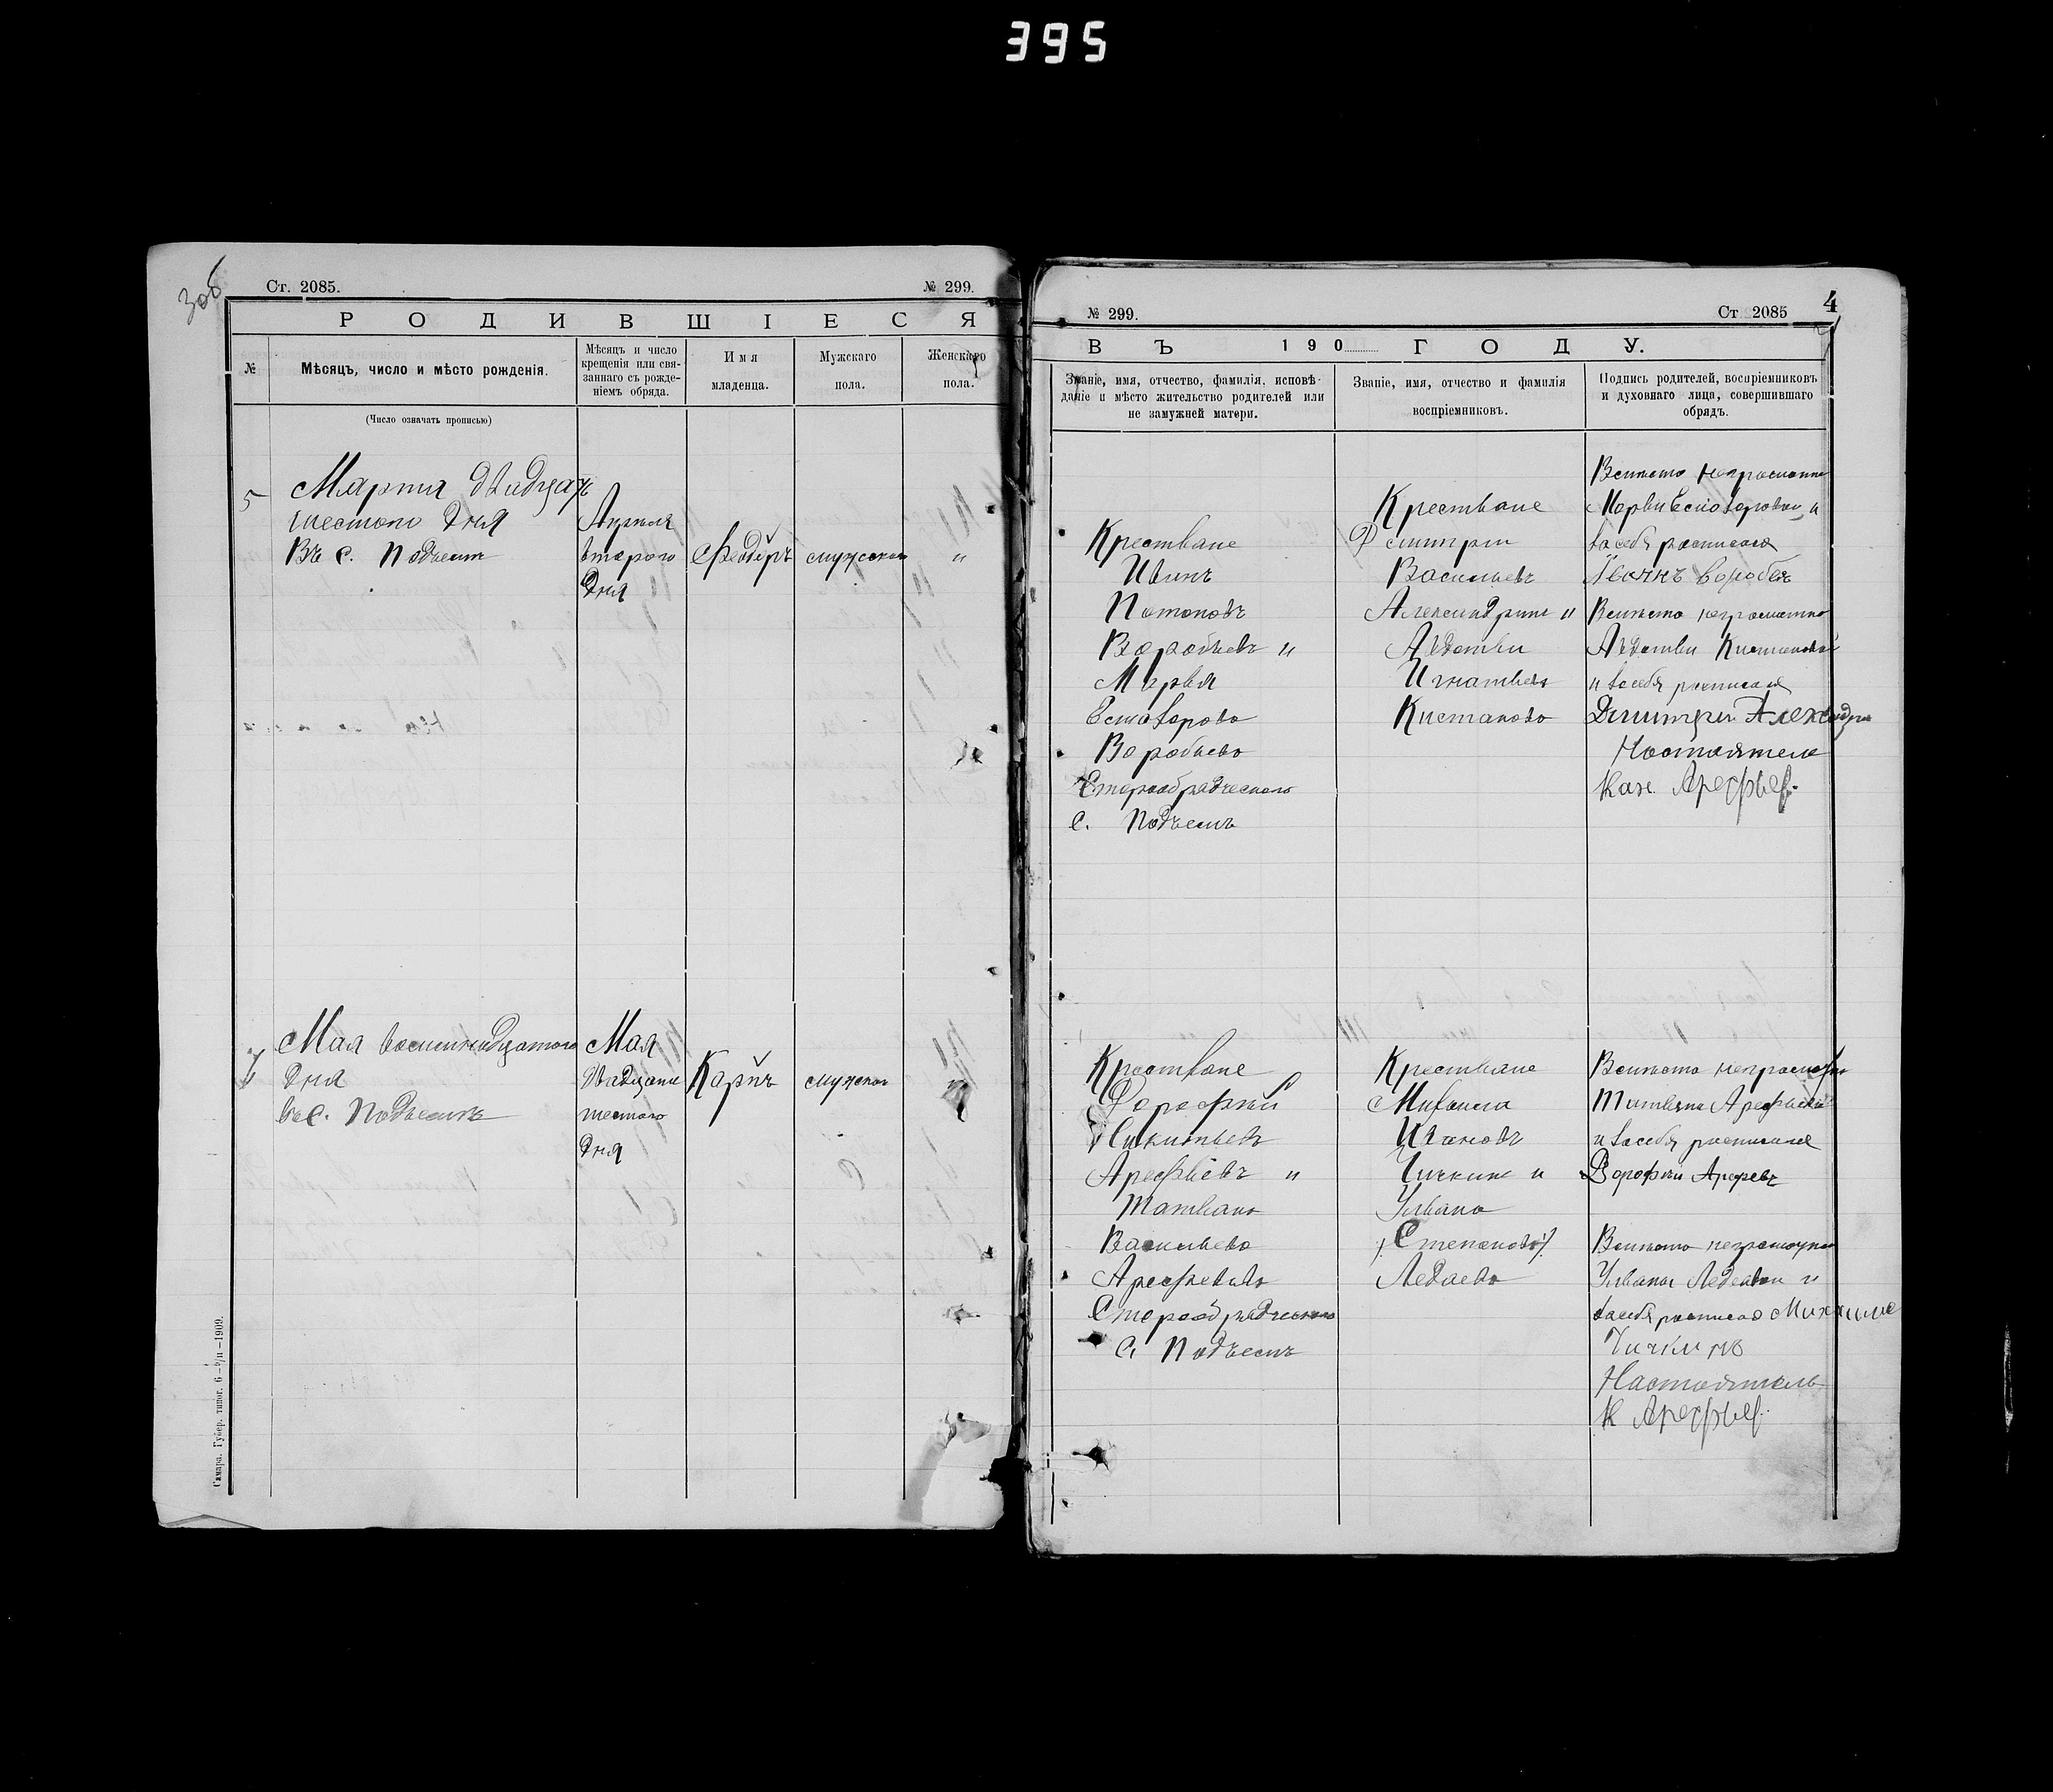 395
Зоб
Ст. 2085.
№ 299.
РОДИВШІЕСЯ
№
Мѣсяцъ, число и мѣсто рожденія.
Мѣсяцъ и число
крещенія или свя-
заннаго съ рожде-
ніемъ обряда.
Имя
младенца.
Мужскаго
пола.
Женскаго
пола.
(Число означать прописью)
5
Марта двадцать
шестого дня
Въ с. Подъемъ
Апреля
второго
дня
Феодеръ
мужеской
"
Мая восемнадцатого
дня
въ с. Подъемъ
Мая
двадцати
шестого
дня
Карпъ
мужской
Самара. Губер. типог.
№ 299.
Ст. 2085
4
ВЪ 190 ГОДУ.
Званіе, имя, отчество, фамилія, исповѣ-
даніе и мѣсто жительство родителей или
не замужней матери.
Званіе, имя, отчество и фамилія
воспріемниковъ.
Подпись родителей, воспріемниковъ
и духовнаго лица, совершившаго
обрядъ.
Крестване
Иванъ
Потаповъ
Воробьевъ и
Марвя
Воробьева
Старообрадческого
с. Подъемъ
Крестване
Дмитрии
Васильевъ
Александринъ и
Авдотьи
Игнатьева
Кистанова
Вместо неграмотно
и
засебя росписался
Вместо неграмотно
Авдотьи Кистановой
и засебя росписался
Дмитрии Александри
Настоятель
Каж Арефьев.
Крестване
Дорофей
Никитьевъ
Арефьевъ и
Татьяна
Васильева
Арефьева
Старообрадческого
С. Подъемъ
Крестване
Михаила
Ивановъ
Чичкинъ и
Ульвана
Степанова
Ледаева
Вместо неграмотно
Татьяна Арефьевой
и засебя росписался
Дорофеи Арефевъ
Вместо неграмотно
Ульваны Ледаевой и
засебя росписался Михаила
Чичкина
Настоятель
К Арефьев.